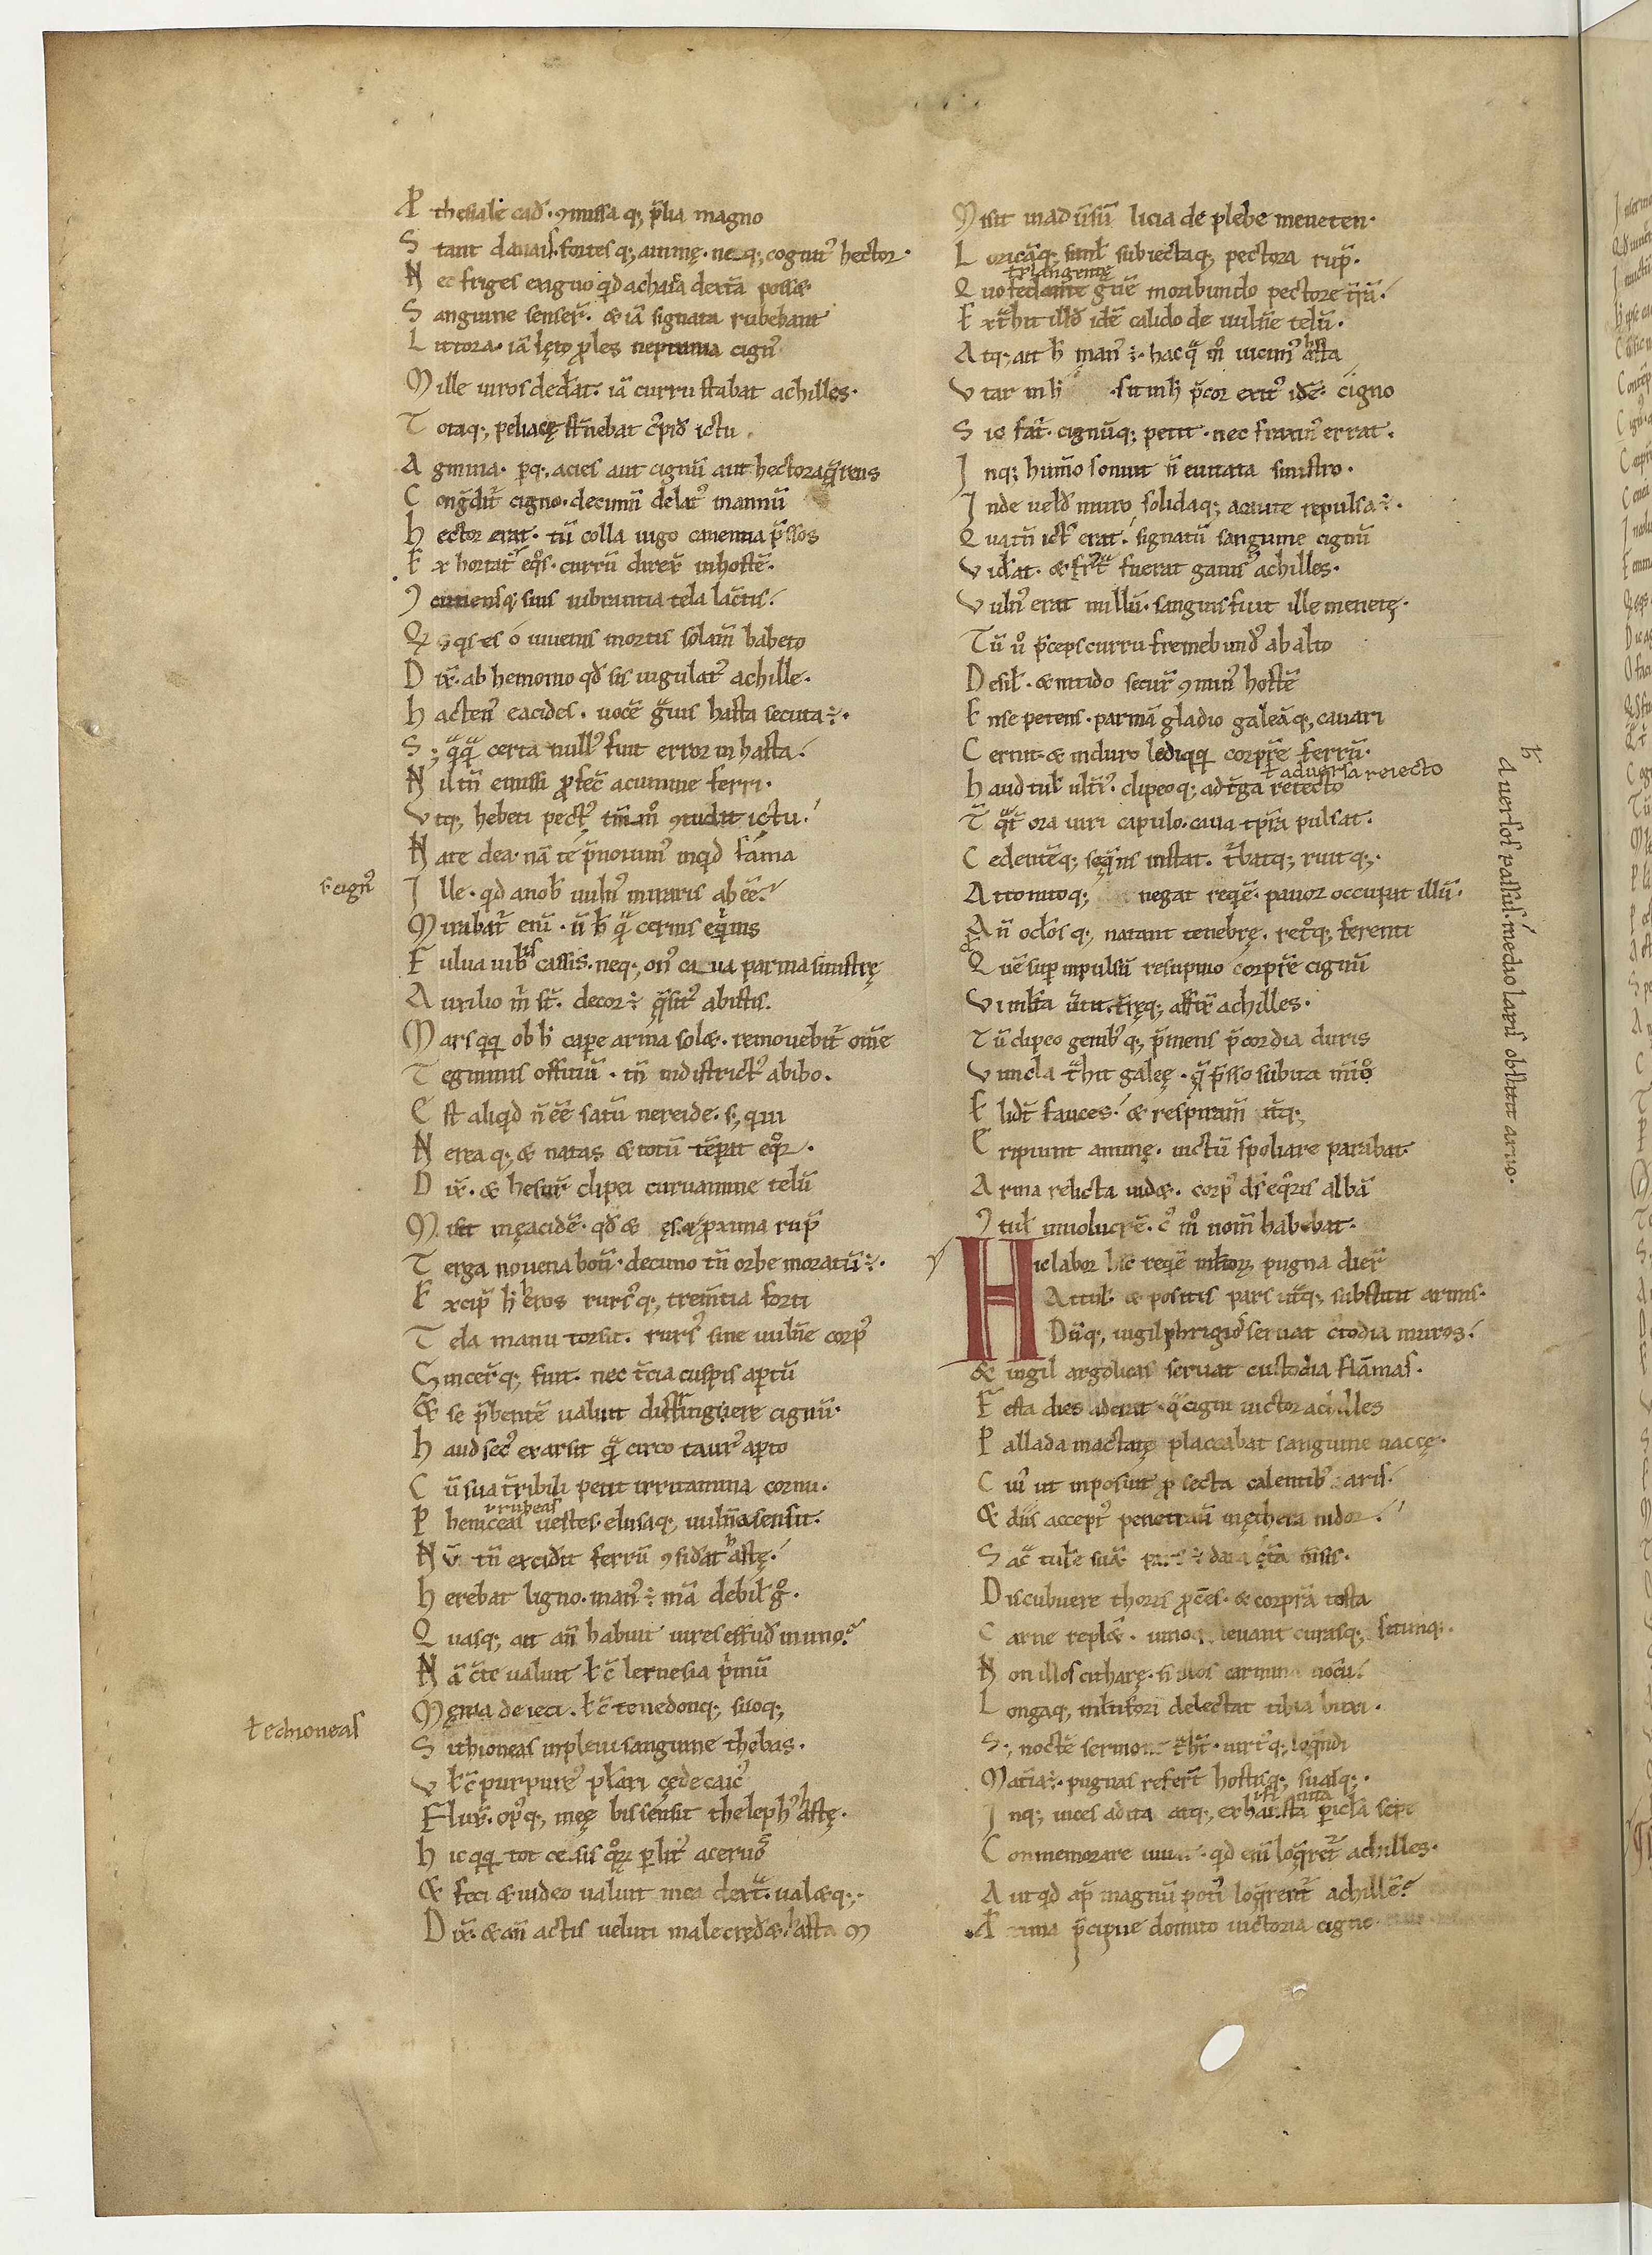 P thesilae cad̄. ꝯmissa q; p̄lia magno
S tant danais. fortes q; animę. neq; cognit᷒ hector.
N ec friges exiguo qd achaia dext̄a possæ
S anguine senser̄. & iā signata rubebant
L ittora. iā lęto ꝓles neptunia cign᷒
M ille uiros ded̄at. iā curru stabat achilles.
T otaq; peliacę st̄nebat c᷒pid᷒ ictu.
A gmina. pq; acies aut cignū aut hectora q̄rens
C ongd̄it᷒ cigno. decimū delat᷒ in annū
H ector erat. tū colla iugo canentia p̄ssos
E x hortat᷒ eq᷒os. currū direx̄ in hostē.
Ꝯ cutiensq; suis uibrantia tela lac̄tis.
Q sqs es o iuuenis mortis solam̄ habeto
D ix̄. ab hemonio qd̄ sis iugulat᷒ achille.
H acten᷒ eacides. uocē g̃uis hasta secuta ÷.
S ; q̃q̃ certa null᷒ fuit error in hasta.
N il tn̄ emissi ꝓfec̄ acumine ferri.
V tq; hebeti pect᷒ tm̄m᷒ ꝯtudit ictu.
N ate dea. nā te p̄nouim᷒ inqd fama
s. cign᷒
I lle. qd a nob̄ uuln᷒ miraris abeē.
M irabat᷒ eni. n̄ h̄ q̃ cernis eq̇nis
F uluaiub᷒ cassis. neq; on᷒ caua parma sinistrę
A uxilio m̄ st̄. decor ÷ q̄sit᷒ ab istis.
M ars qq; ob h̄ cape arma solæ. remouebit᷒ om̄e
T egminis officiū. tn̄ indistrict᷒ abibo.
E st aliqd n̄ eē satū nereide. s; qui
N erea q; & natas & totū tēpat eq᷒r.
D ix̄. & hesur̄ clipei curuamine telū
M isit in ęacidē. qd̄ & ęs & ꝓxima rup̄
T erga nouena boū. decimo tn̄ orbe moratū ÷.
E xcip̄ h̄ heros rurs᷒q; trem̄tia forti
T ela manu torsit. rurs᷒ sine uuln̄e corp᷒
S incer̄q; fuit. nec t̄cia cuspis aptū
& se p̄bentē ualuit distringuere cignū.
H aud sec᷒ exarsit q̃ circo taur᷒ apto
C ū sua t̄ribili petit irritamina cornu.
ł rubeas
P heniceas uestes. elusaq; uuln̄a sensit.
N ū tn̄ excid̄it ferrū ꝯsid̄at hastę.
H erebat ligno. man᷒ ÷ m̄a debil᷒ g᷒.
Q uasq; ait an̄ habuit uires effud̄ in uno.
N ā c̄te ualuit ł c̄ lernesia p̄mū
M ęnia deieci. ł c̄ tenedonq; suoq;
ł echioneas
S ithioneas inpleui sangume thebas.
V ł c̄ purpure᷒ plari cęde caic᷒
Flux̄. op᷒q; meę bis sensit theleph᷒ hastę.
H ic qq; tot cesis q᷒r᷒ p lit᷒ aceruo
& feci & uideo ualuit mea dext̄. ualæq;.
D ix̄. & an̄ actis ueluti male cred̄æ hasta m
M isit in aduūsū licia de plebe meneten.
L oricāq; simł subiectaq; pectora rup̄.
t plangente
Q uo g̃uē moribundo pectore t̄rā.
E xt̄hit illd̄ idē calido de uuln̄e telū.
A tq; ait h̄ man᷒ ÷. hac q̃ m᷒ uicim᷒ hasta
V tar in h̄ . sit in h̄ p̄cor exit᷒ idē. cigno
S ic fat᷒. cignūq; petit. nec fraxin᷒ errat.
I nq; hum̄o sonuit n̄ euitata sinistro.
I nde uełd̄ muro solidaq; a caute repulsa ÷.
Q ua tn̄ ict᷒ erat. signatū sanguine cignū
V id̄at. & frr̄a fuerat gauis᷒ achilles.
V uln᷒ erat nullū. sanguis fuit ille menetę.
Tū u᷒ p̄ceps curru fremebund᷒ ab alto
D esił. & nitido secur̄ ꝯmin᷒ hostē
E nse petens. parmā gladio galeāq; cauari
C ernit & in duro lędi qq; corpr̄e ferrū.
ł aduersa reiecto
H aud tuł ult̄i᷒. clipeoq; ad t̄ga retecto
T q̃t ora uiri capulo. caua tp̄ra pulsat.
C edentēq; seq̃ns instat. t̄batq; ruitq;.
A ttonitoq; negat reqē. pauor occupat illū.
A n̄ oc̄los q; natant tenebrę. ret᷒q; ferenti
h̄ Auersos passus. medio lapis obstitit aruo.
Q uē sup inpulsū resupino corpr̄e cignū
V i mł̄ta ūtit t̄ręq; affix̄ achilles.
T ū clipeo genib᷒q; p̄mens p̄cordia duris
V incla t̄hit galeę. q̄ p̄sso subita m̄to
E lidt̄ fauces. & respiram̄ itq;
E ripiunt animę. uictū spoliare parabat
A rma relicta uidæ. corp᷒ ds̄ eq̄ris albā
Ꝯ tuł in uolucrē. c᷒ m᷒ nom̄ habebat.
Hic labor hęc reqē mł̄tor᷒ pugna dier᷒
Attuł & positis pars ut̄q; substitit armis.
Dūq; uigil phrigios seruat c᷒todia muros.
& uigil argolicas seruat custodia flāmas.
F esta dies aderat. q̃ cigni uictor achilles
P allada mactatę placcabat sanguine uaccę.
C ui᷒ ut inposuit ꝓsecta calentib᷒ aris.
& diis accept᷒ penetrauū in ęthera nidor.
S ac̄ tuł̄e suā. pars ÷ data cęt̄a m̄sis.
D iscubuere thoris ꝓc̄es. & corpr̄a tosta
C arne replæ. uinoq; leuant curasq; sitimq;.
N on illos citharę. n̄ illos carmina uocū.
L ongaq; mł̄tifori delectat tibia buxi.
S ; noctē sermone t̄ht̄. uirt᷒q; loq̃ndi
M atia ÷. pugnas refer̄t hostisq; suasq;.
I nq; uices adita atq; exhausta picła sepe
C ommemorare iuuat. qd eni loq̄ret᷒ achilles.
A ut qd ap̄ magnū poti᷒ loq̄rent᷒ achillē.
P roxima p̄cipue domito uictoria cigno